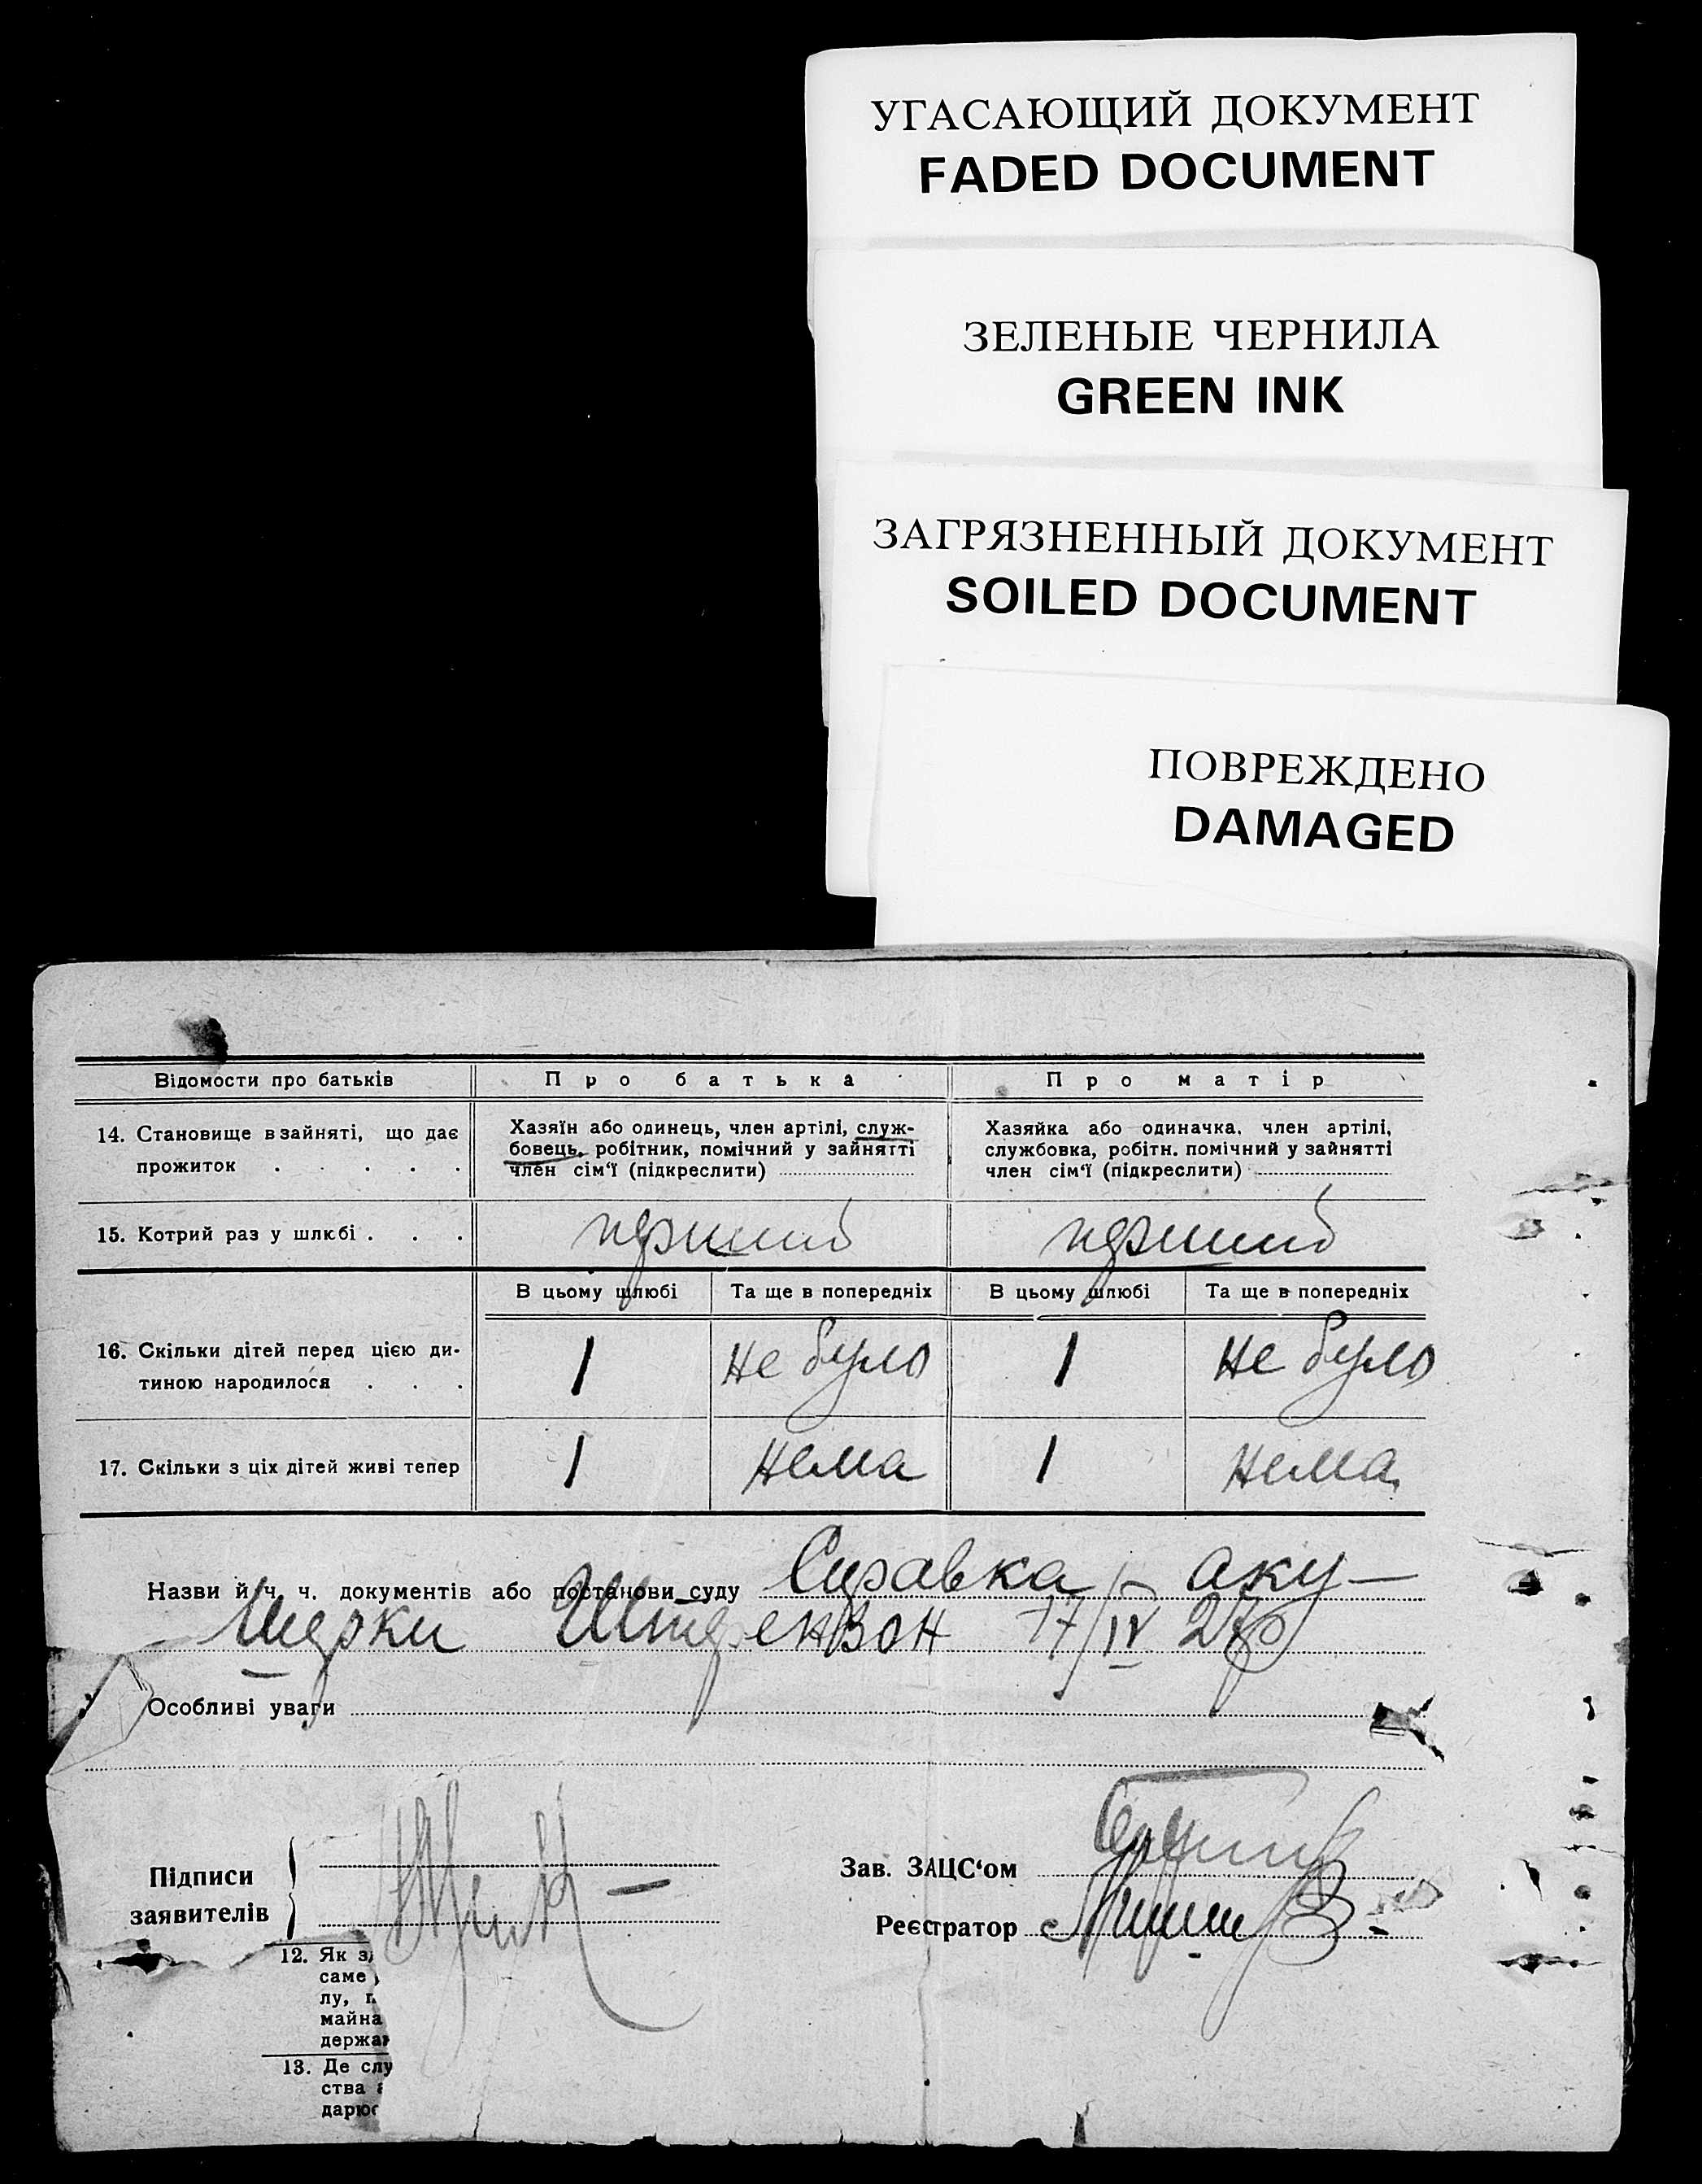 УГАСАЮЩИЙ ДОКУМЕНТ
FADED DOCUMENT
ЗЕЛЕНЫЕ ЧЕРНИЛА
GREEN INK
ЗАГРЯЗНЕННЫЙ ДОКУМЕНТ
SOILED DOCUMENT
ПОВРЕЖДЕНО
DAMAGED
Відомости про батьків Про батька Про матір
14. Становище в зайняті, що дає
прожиток . . . . .
Хазяїн або одинець, член артілі, служ-
бовець, робітник, помічний у зайнятті
член сім'ї (підкреслити)
Хазяйка або одиначка, член артілі,
службовка, робітн. помічний у зайнятті
член сім'ї (підкреслити)
15. Котрий раз у шлюбі . . . перший перший
В цьому шлюбі Та ще в попередніх В цьому шлюбі Та ще в попередніх
16. Скільки дітей перед цією ди-
тиною народилося . . .
1 не було 1 не було
17. Скільки з ціх дітей живі тепер 1 нема 1 нема
Назви й ч. ч. документів або постанови суду Справка аку-
шерки 17/IV 27р
Особливі уваги
Підписи
заявителів
Зав. ЗАЦС'ом
Реєстратор
12. Як з
саме
лу, п
майна
держав
13. Де слу
ства
дарює